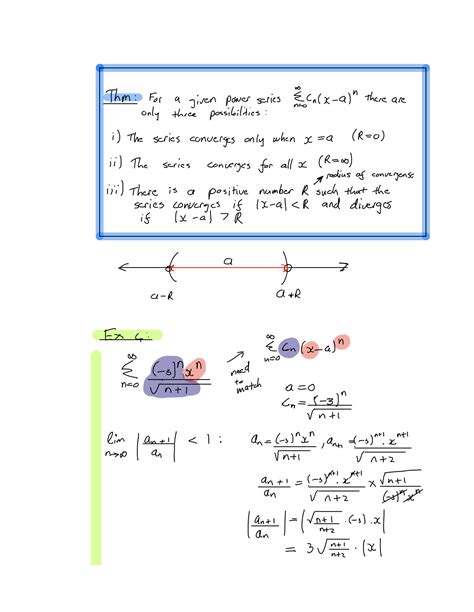 Thm: For a given power series ∞Σn=0 Cn(x-a)^n there are
only three possibilities:
i) The series converges only when x=a (R=0)
ii) The series converges for all x (R=∞)
radius of convergence
iii) There is a positive number R such that the
series converges if |x-a|<R and diverges
if |x-a|>R
a
a-R a+R
Ex 4:
∞Σn=0 (-3)^n x^n / √(n+1) need to match ∞Σn=0 Cn(x-a)^n
a=0
Cn = (-3)^n / √(n+1)
lim n→∞ |an+1 / an| < 1 : an = (-3)^n x^n / √(n+1) , an+1 = (-3)^(n+1) x^(n+1) / √(n+2)
an+1 / an = (-3)^(n+1) · x^(n+1) / √(n+2) × √(n+1) / (-3)^n x^n
|an+1 / an| = |√((n+1)/(n+2)) · (-3) · x|
= 3√((n+1)/(n+2)) · |x|